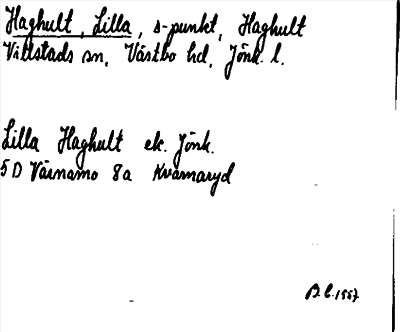 Haghult, Lilla, s-punkt, Haghult
Villstads sn, Västbo hd, Jönk. l.
Lilla Haghult ek. Jönk.
5D Värnamo 8a Kvarnaryd
B.C. 1957